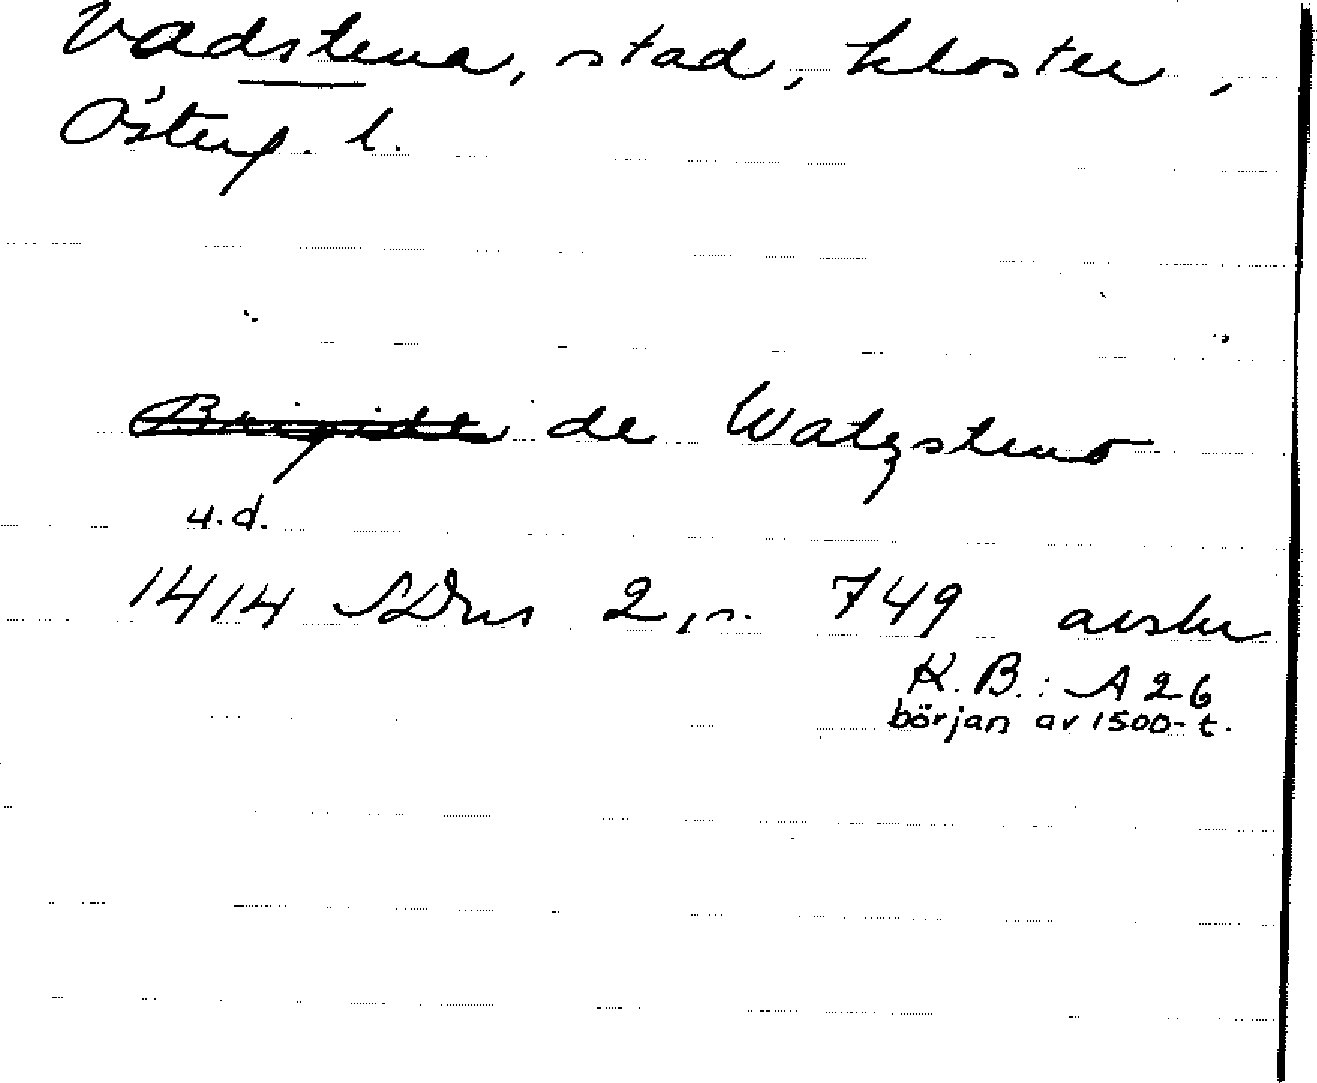 Vadstena, stad, kloster,
Österg. l.
Brigidt de Watzsteno
u.d.
1414 SDns 2, s. 749 avskr
K.B.: A 26
början av 1500-t.